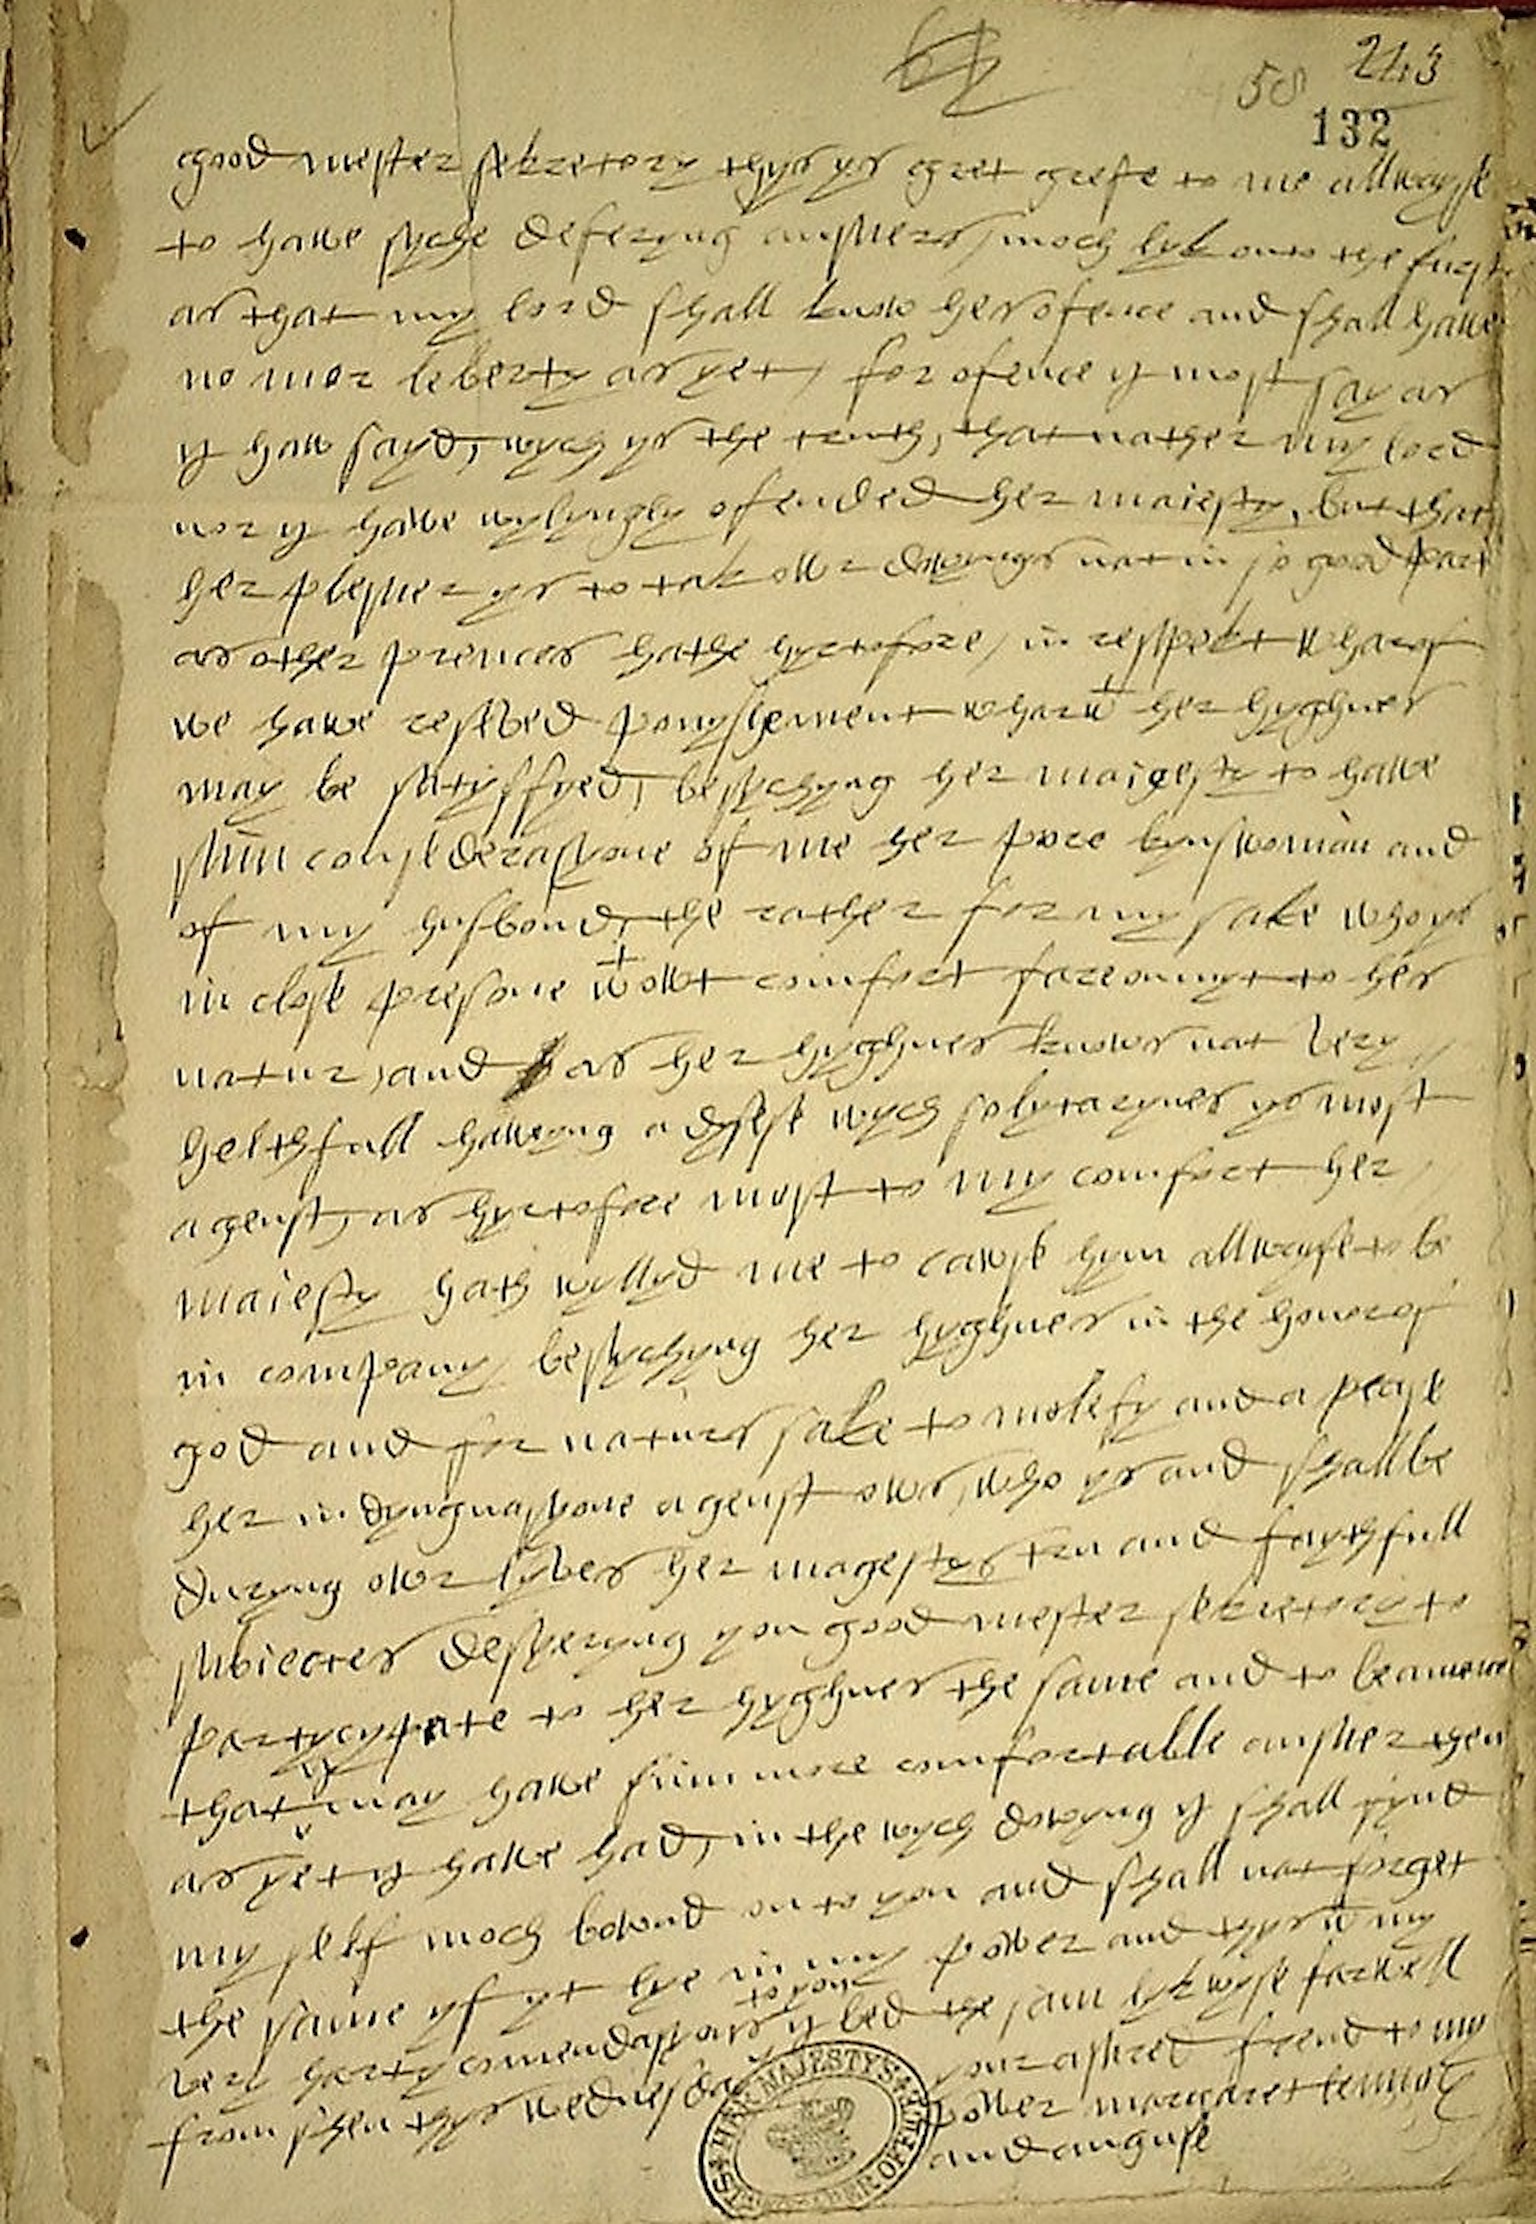 58 243
132
good mester sekretory thys ys gret grefe to me allwayse
to hawe syche deferyng answers, moch lyk onto the furst
as that my lord shall know hes ofence and shall hawe
no mor leberty as yet, for ofence y most say as
y haw sayd, wych ys the truth, that nather my lord
nor y hawe wylyngly ofended her maiesty, but that
her plesuer ys to tak owr dowyngs nat in so good part
as other prences hathe hyrtofore, in resspekt wharof
we hawe reseved ponyshement wharwt her hyghnes
may be satysffyed, besychyng her maigesty to hawe
sum consederasyone of me her pore kynswoman and
of my husbond, the rather for my sake who ys
in close presone wtowt comfort fare onmyt to hes
natur, and as her hyghnes knows nat very
helthfull haweyng a dysese wych solytarynes ys most
agenst, as hyrtofore most to my comfort her
maiesty hath wyllyd me to cawse hym allwayse to be
in company, besychyng her hyghnes in the honor of
god and for naturs sake to molefy and a pease
her indyngnasyone agenst ows, who ys and shall be
duryng owr lyves her magestys tru and faythfull
subiectes desyeryng you good mester sekretory to
partycypate to her hyghnes the same and to be a mene
that y may hawe sum more comfortable answer then
as yet y hawe had, in the wych dowyng y shall fynd
my self moch bownd onto you and shall nat forget
the same yf yt lye in my power and thys wt my
very harty comendasyons to you y bed the sam lykwyse farwell
from shen thys wednesday your asured frend to my
power margaret lennox
and anguse
HER MAJESTYS STATE PAPER OFFICE